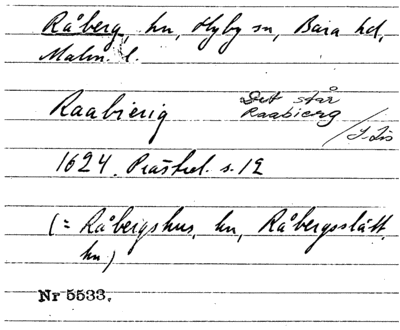 Råberg, hn, Hyby sn, Bara hd,
Malm. l.
Raabierig
Det står
Raabierg
/J. Lis
1624. Prästrel. s. 12
(= Råbergshus, hn, Råbergsslätt,
hn)
Nr 5533.